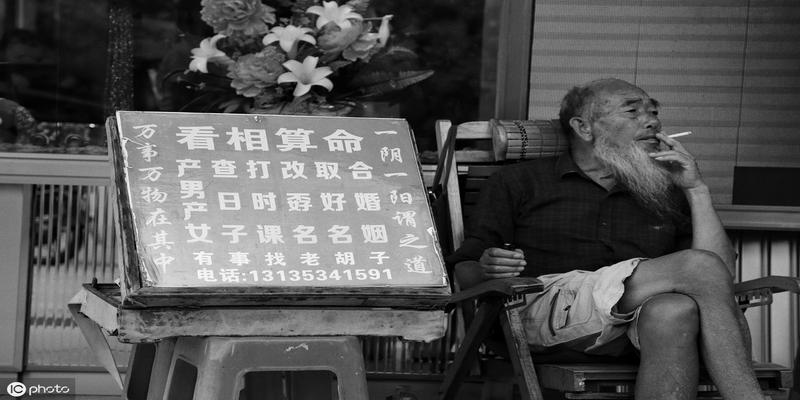 看相算命
一阴一阳谓之道
万事万物在其中
产男产女
查日子
打时课
改孬名
取好名
合婚姻
有事找老胡子
电话:13135341591
iC photo